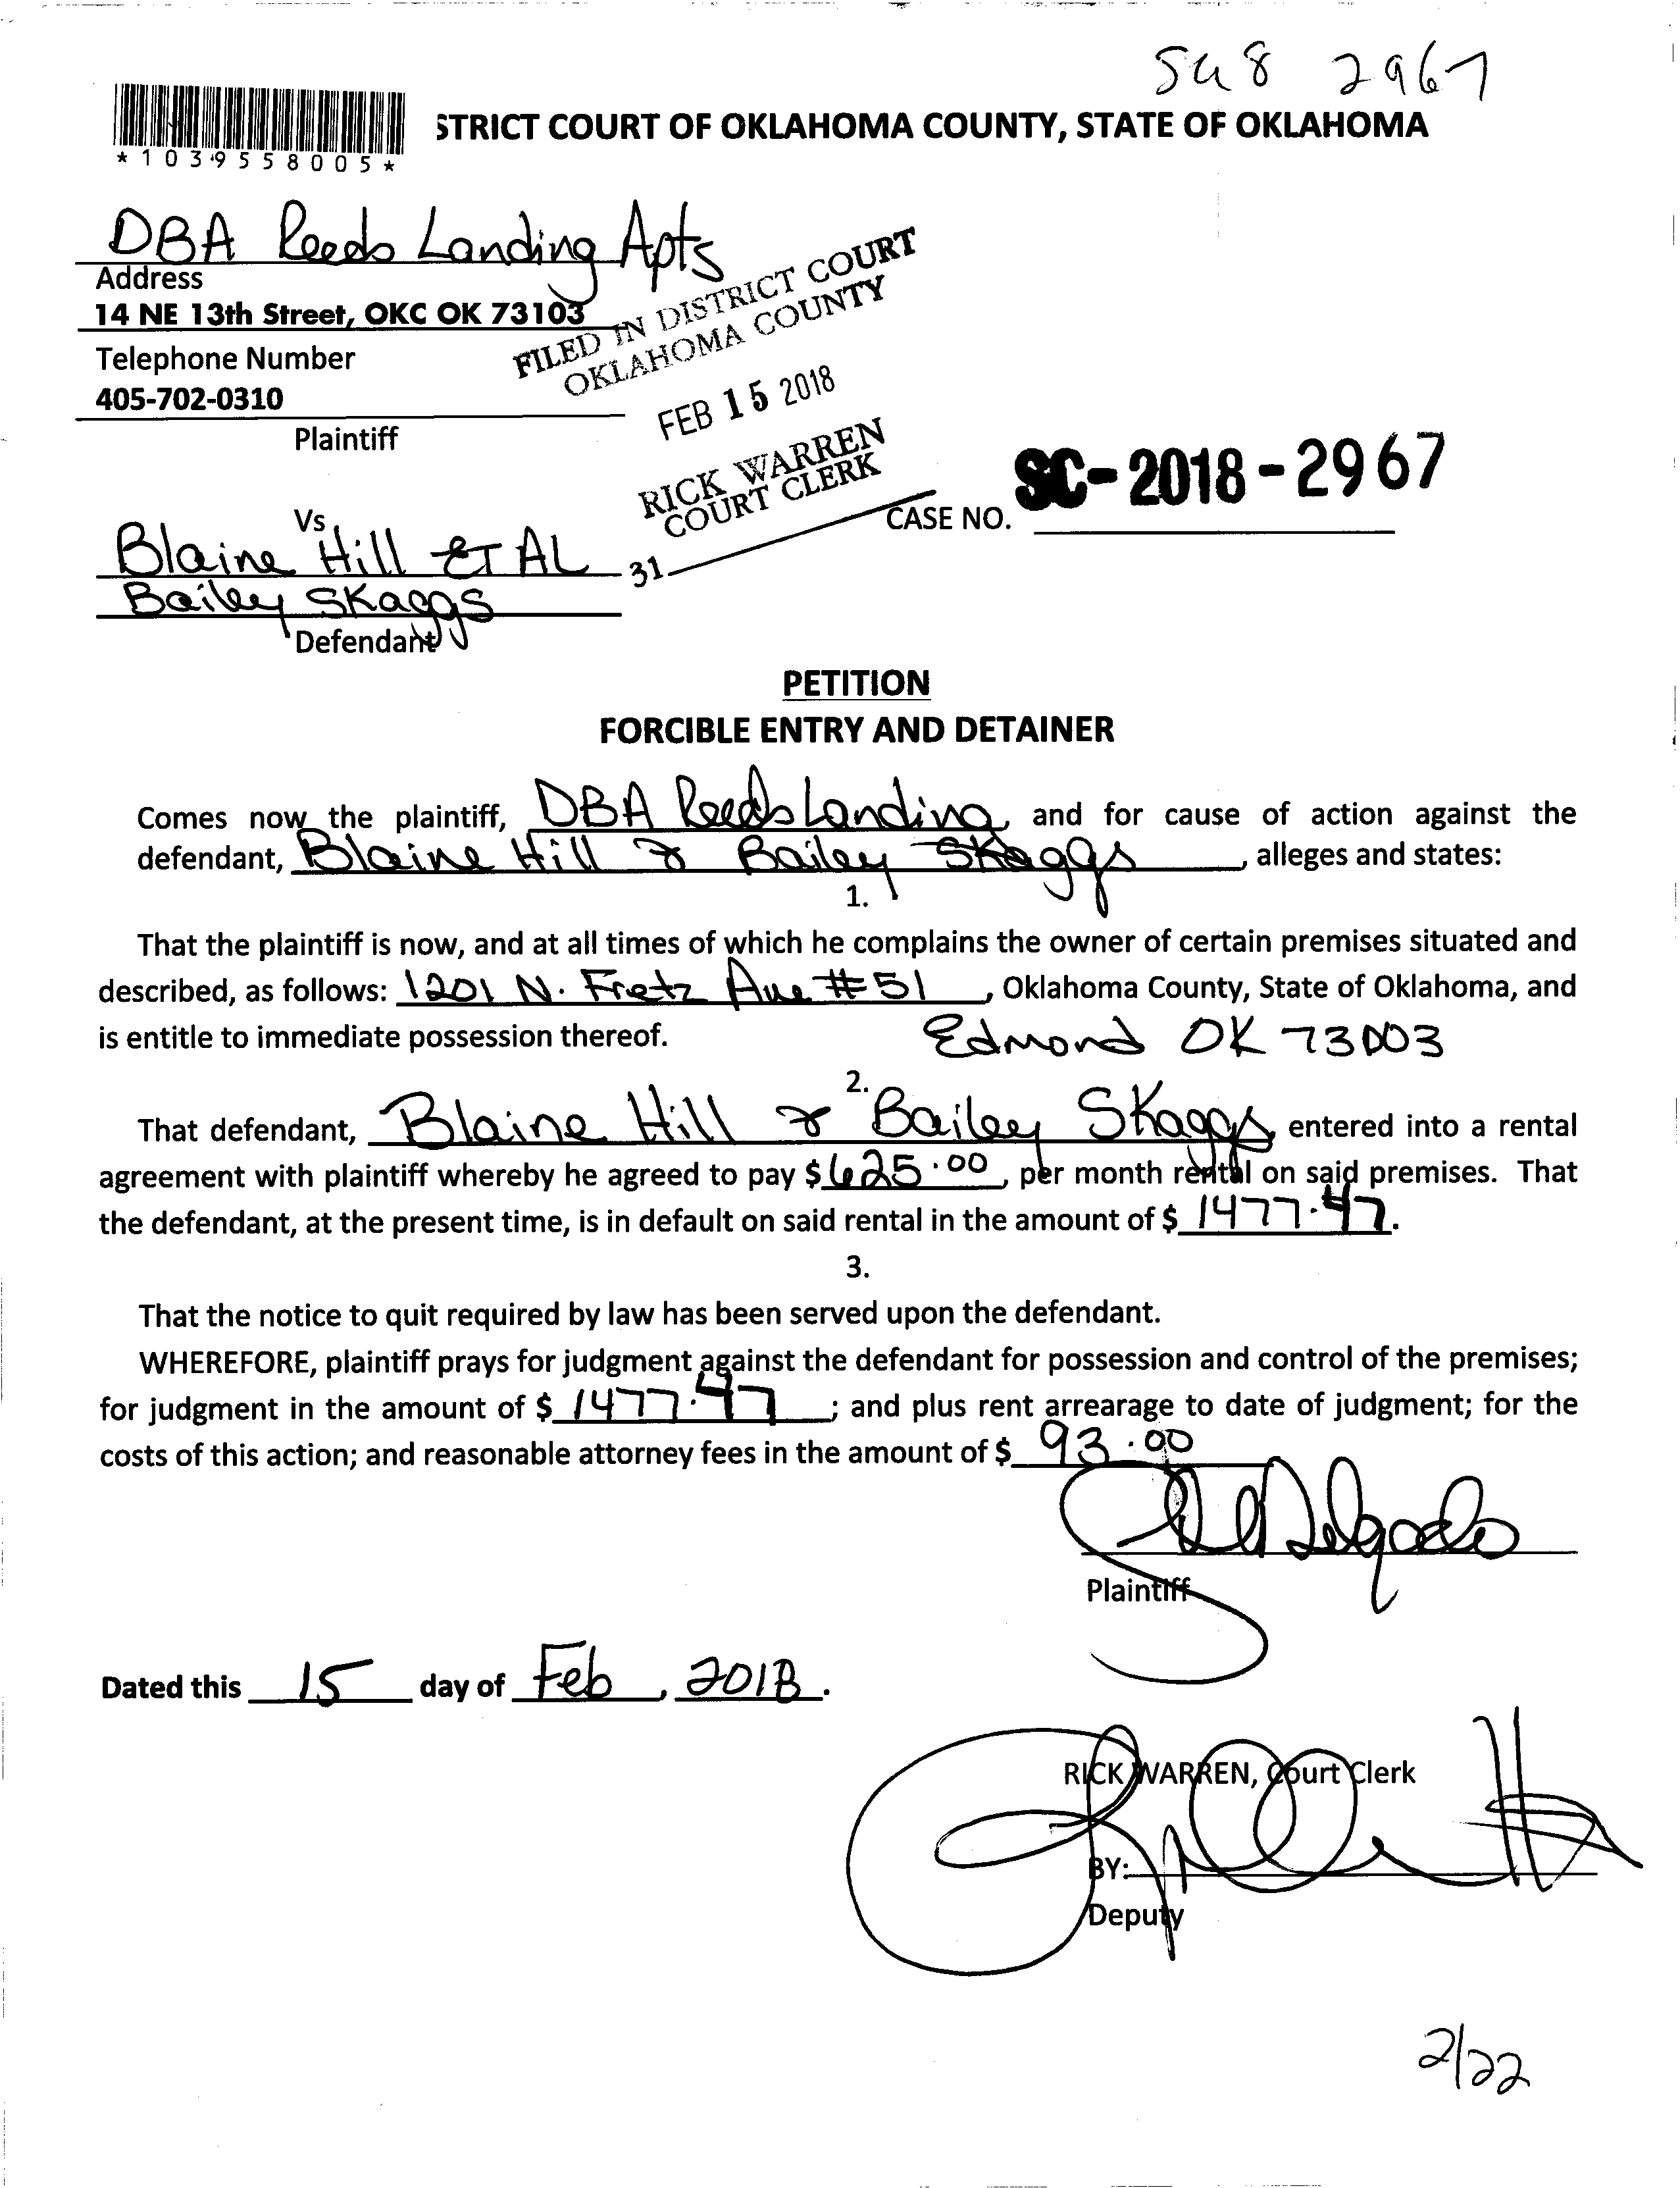 SC18 2967
*1039558005*
STRICT COURT OF OKLAHOMA COUNTY, STATE OF OKLAHOMA
DBA Reeds Landing Apts
Address
14 NE 13th Street, OKC OK 73103
Telephone Number
405-702-0310
Plaintiff
FILED IN DISTRICT COURT
OKLAHOMA COUNTY
FEB 15 2018
RICK WARREN
COURT CLERK
31
CASE NO. SC-2018-2967
Vs
Blaine Hill ET AL
Bailey Skaggs
Defendant
PETITION
FORCIBLE ENTRY AND DETAINER
Comes now the plaintiff, DBA Reeds Landing, and for cause of action against the
defendant, Blaine Hill & Bailey Skaggs, alleges and states:
1.
That the plaintiff is now, and at all times of which he complains the owner of certain premises situated and
described, as follows: 1201 N. Fretz Ave #51, Oklahoma County, State of Oklahoma, and
is entitle to immediate possession thereof. Edmond OK 73003
2.
That defendant, Blaine Hill & Bailey Skaggs, entered into a rental
agreement with plaintiff whereby he agreed to pay $625.00, per month rental on said premises. That
the defendant, at the present time, is in default on said rental in the amount of $ 1477.47.
3.
That the notice to quit required by law has been served upon the defendant.
WHEREFORE, plaintiff prays for judgment against the defendant for possession and control of the premises;
for judgment in the amount of $ 1477.47; and plus rent arrearage to date of judgment; for the
costs of this action; and reasonable attorney fees in the amount of $ 93.00
Delgado
Plaintiff
Dated this 15 day of Feb, 2018.
RICK WARREN, Court Clerk
BY:
Deputy
2/22